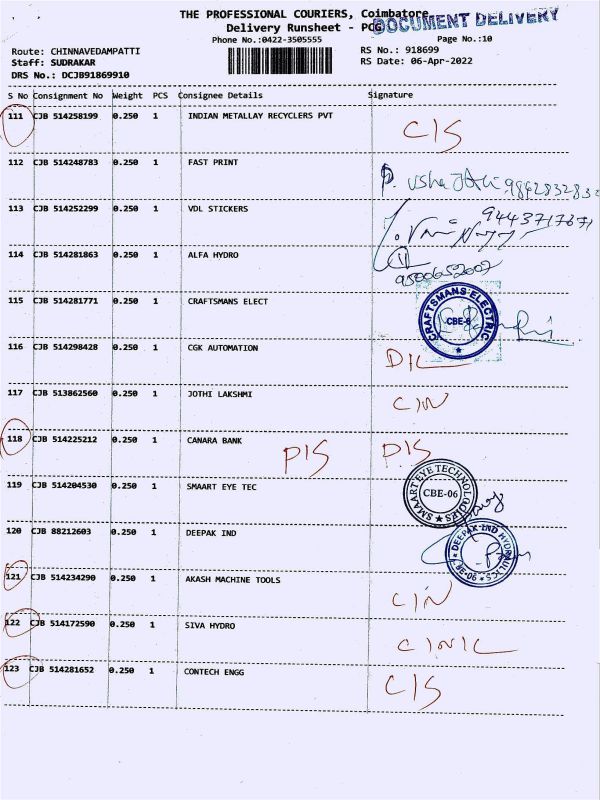 THE PROFESSIONAL COURIERS, Coimbatore
DOCUMENT DELIVERY
Delivery Runsheet - PCG
Phone No.:0422-3505555
Page No.:10
Route: CHINNAVEDAMPATTI
RS No.: 918699
Staff: SUDRAKAR
RS Date: 06-Apr-2022
DRS No.: DCJB91869910
S No Consignment No Weight PCS Consignee Details Signature
111 CJB 514258199 0.250 1 INDIAN METALLAY RECYCLERS PVT CIS
112 CJB 514248783 0.250 1 FAST PRINT P. usha
113 CJB 514252299 0.250 1 VDL STICKERS 9443717671
114 CJB 514281863 0.250 1 ALFA HYDRO 9500652007
115 CJB 514281771 0.250 1 CRAFTSMANS ELECT CRAFTSMANS ELECTRIC CBE-6
116 CJB 514298428 0.250 1 CGK AUTOMATION DIL
117 CJB 513862560 0.250 1 JOTHI LAKSHMI CIN
118 CJB 514225212 0.250 1 CANARA BANK PIS PIS
119 CJB 514204530 0.250 1 SMAART EYE TEC SMAART EYE TECHNOLOGIES CBE-06
120 CJB 88212603 0.250 1 DEEPAK IND DEEPAK IND HYDRAULICS CBE-06
121 CJB 514234290 0.250 1 AKASH MACHINE TOOLS CIN
122 CJB 514172590 0.250 1 SIVA HYDRO CINIL
123 CJB 514281652 0.250 1 CONTECH ENGG CIS